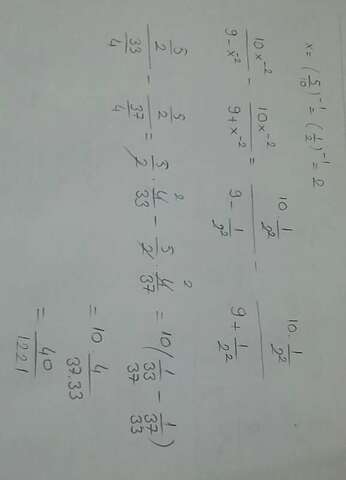 x = (5/10)^-1 = (1/2)^-1 = 2
10x^-2/(9-x^-2) - 10x^-2/(9+x^-2) = (10 1/2²)/(9 - 1/2²) - (10 1/2²)/(9 + 1/2²)
(5/2)/(33/4) - (5/2)/(37/4) = 5/2 · 4/33 2 - 5/2 · 4/37 2 = 10(1/33 37 - 1/37 33)
= 10 4/37.33
= 40/1221